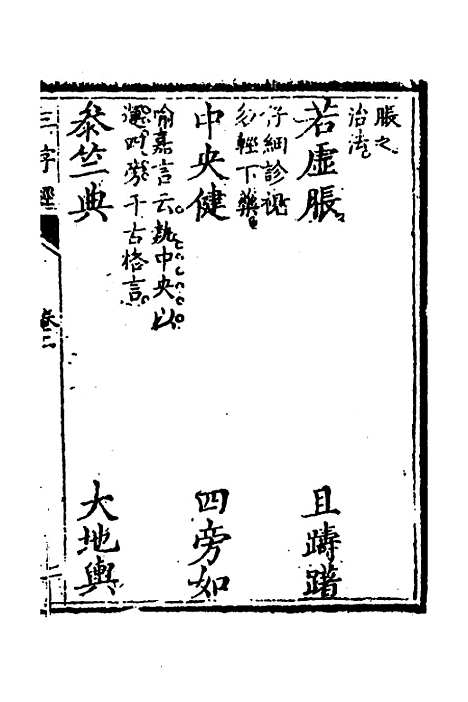 脹之
治法
若虛脹 且躊躇
仔細診視
勿輕下藥
中央健 四旁如
喻嘉言云執中央以
運四旁千古格言
叅竺典 大地輿
三字經 卷二